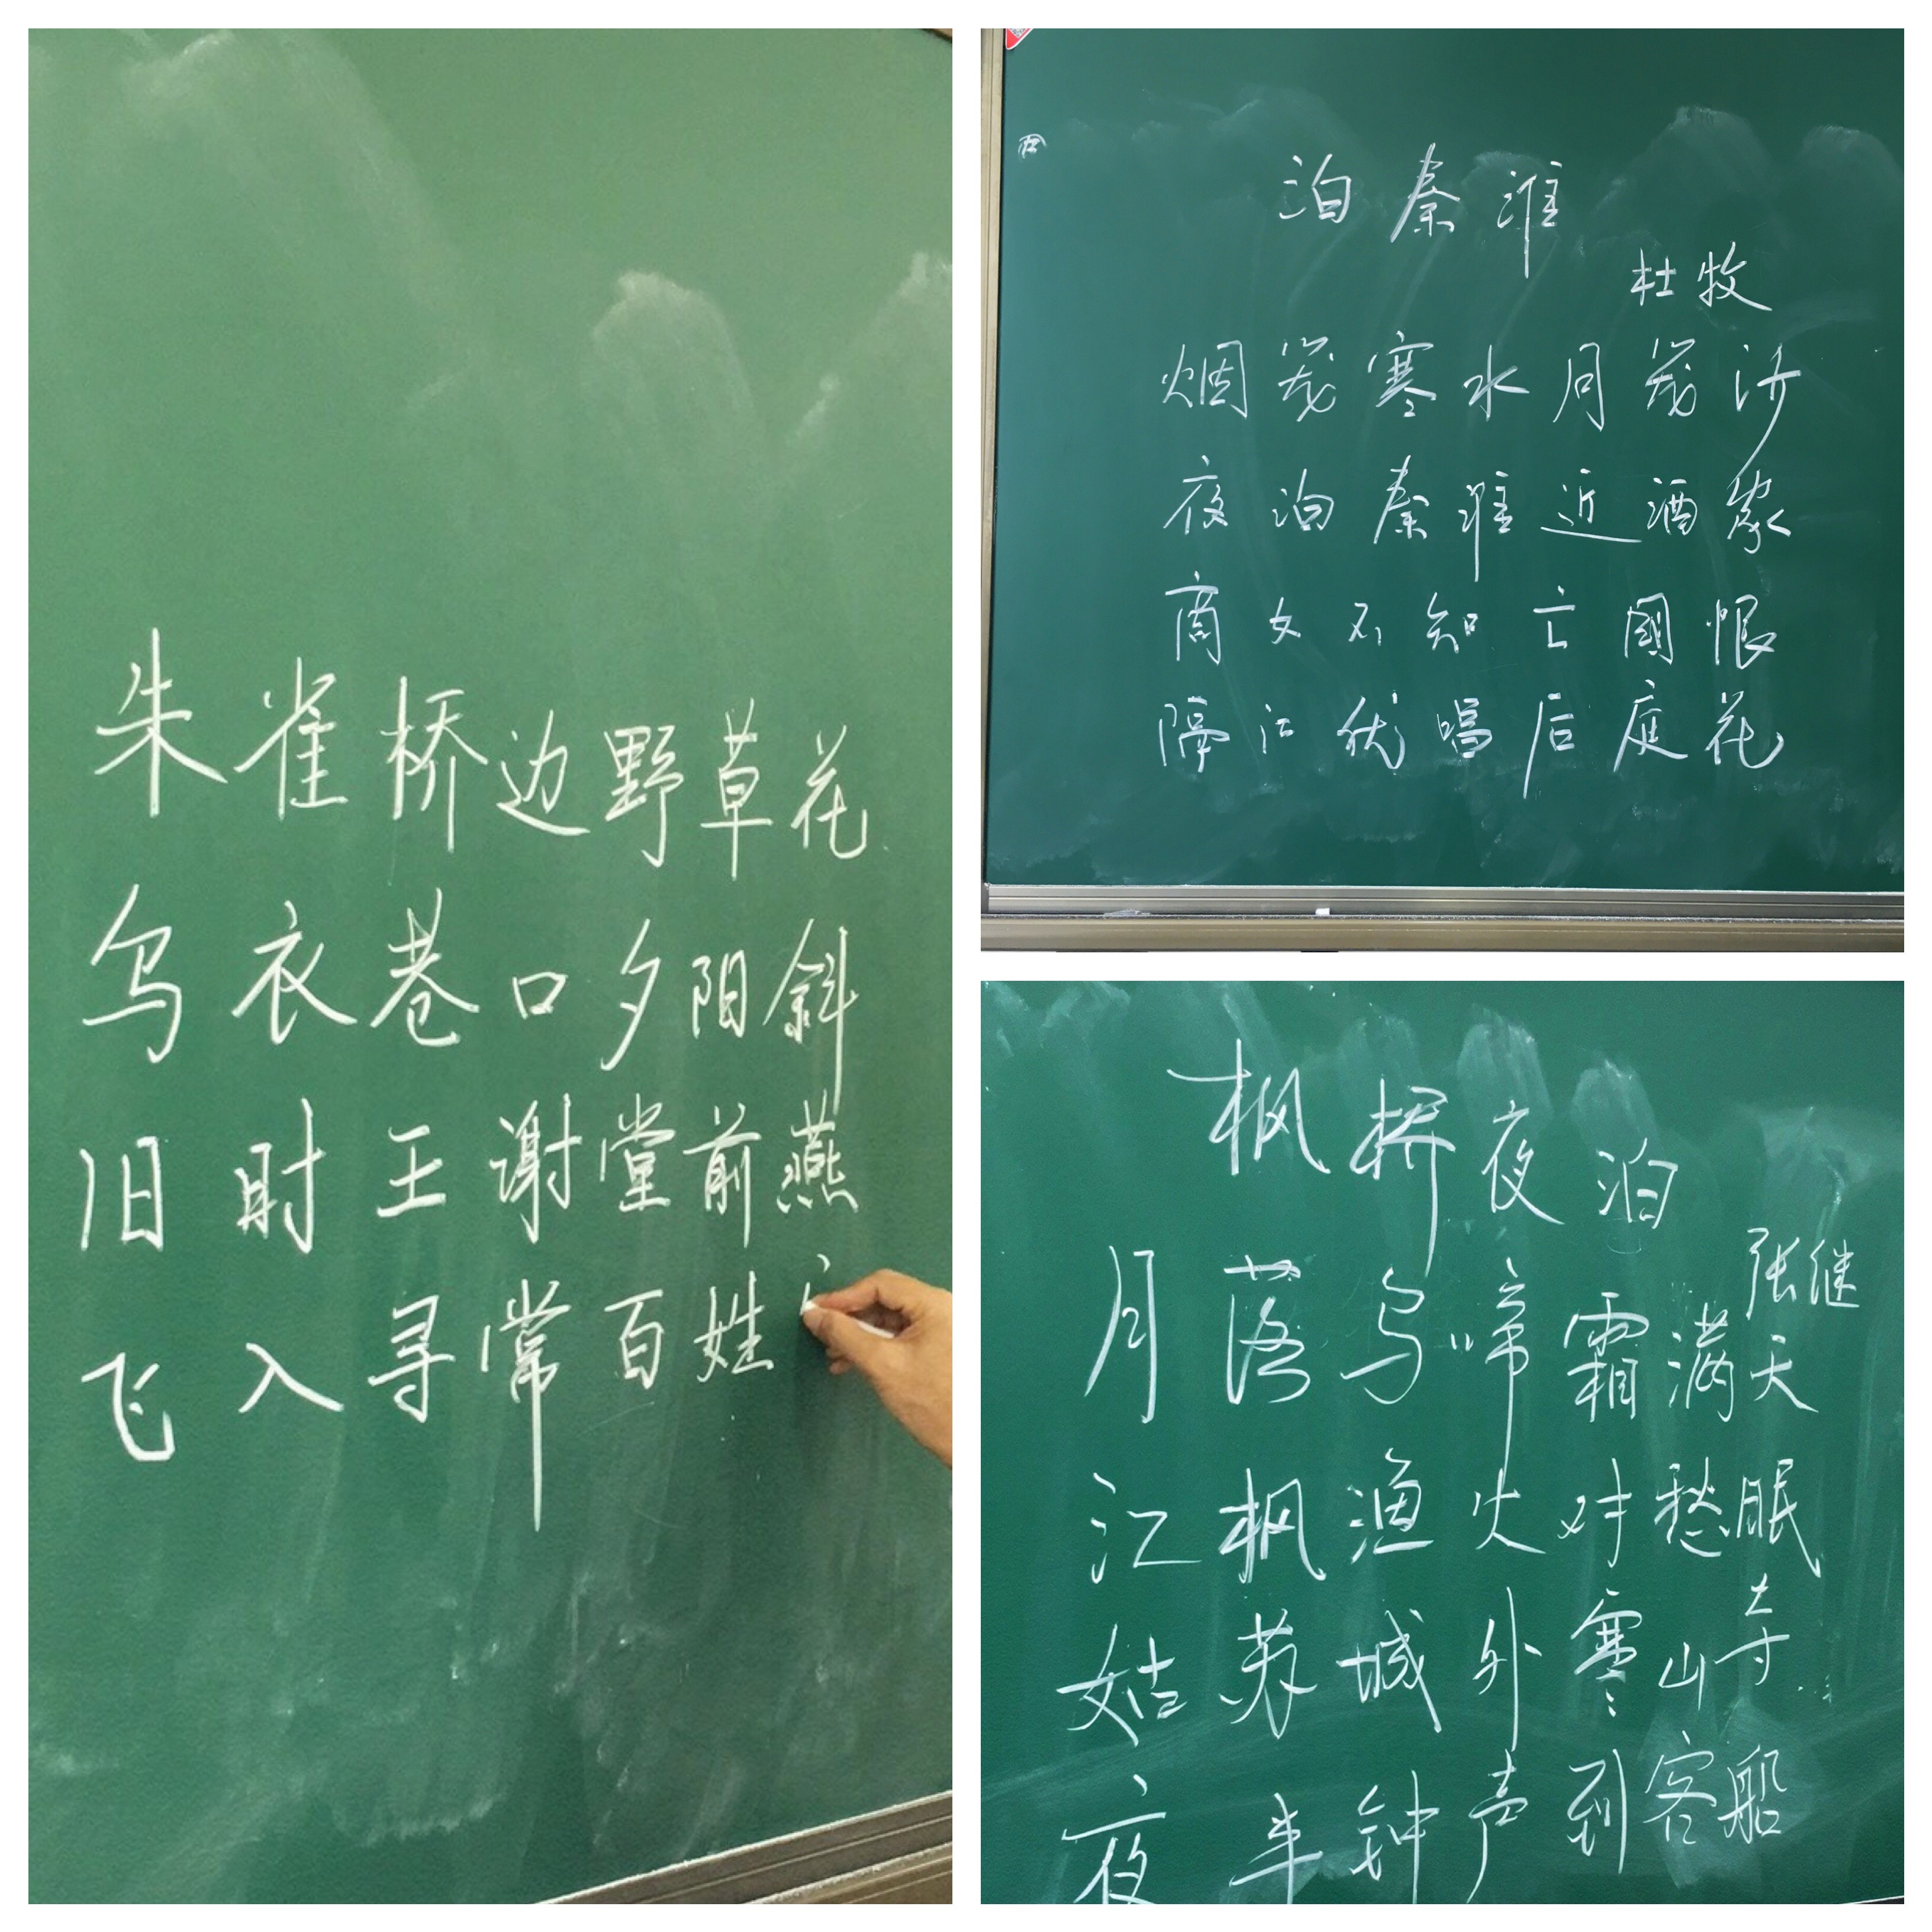 朱雀桥边野草花
乌衣巷口夕阳斜
旧时王谢堂前燕
飞入寻常百姓
泊秦淮
杜牧
烟笼寒水月笼沙
夜泊秦淮近酒家
商女不知亡國恨
隔江犹唱后庭花
枫桥夜泊
张继
月落乌啼霜满天
江枫渔火对愁眠
姑苏城外寒山寺
夜半钟声到客船